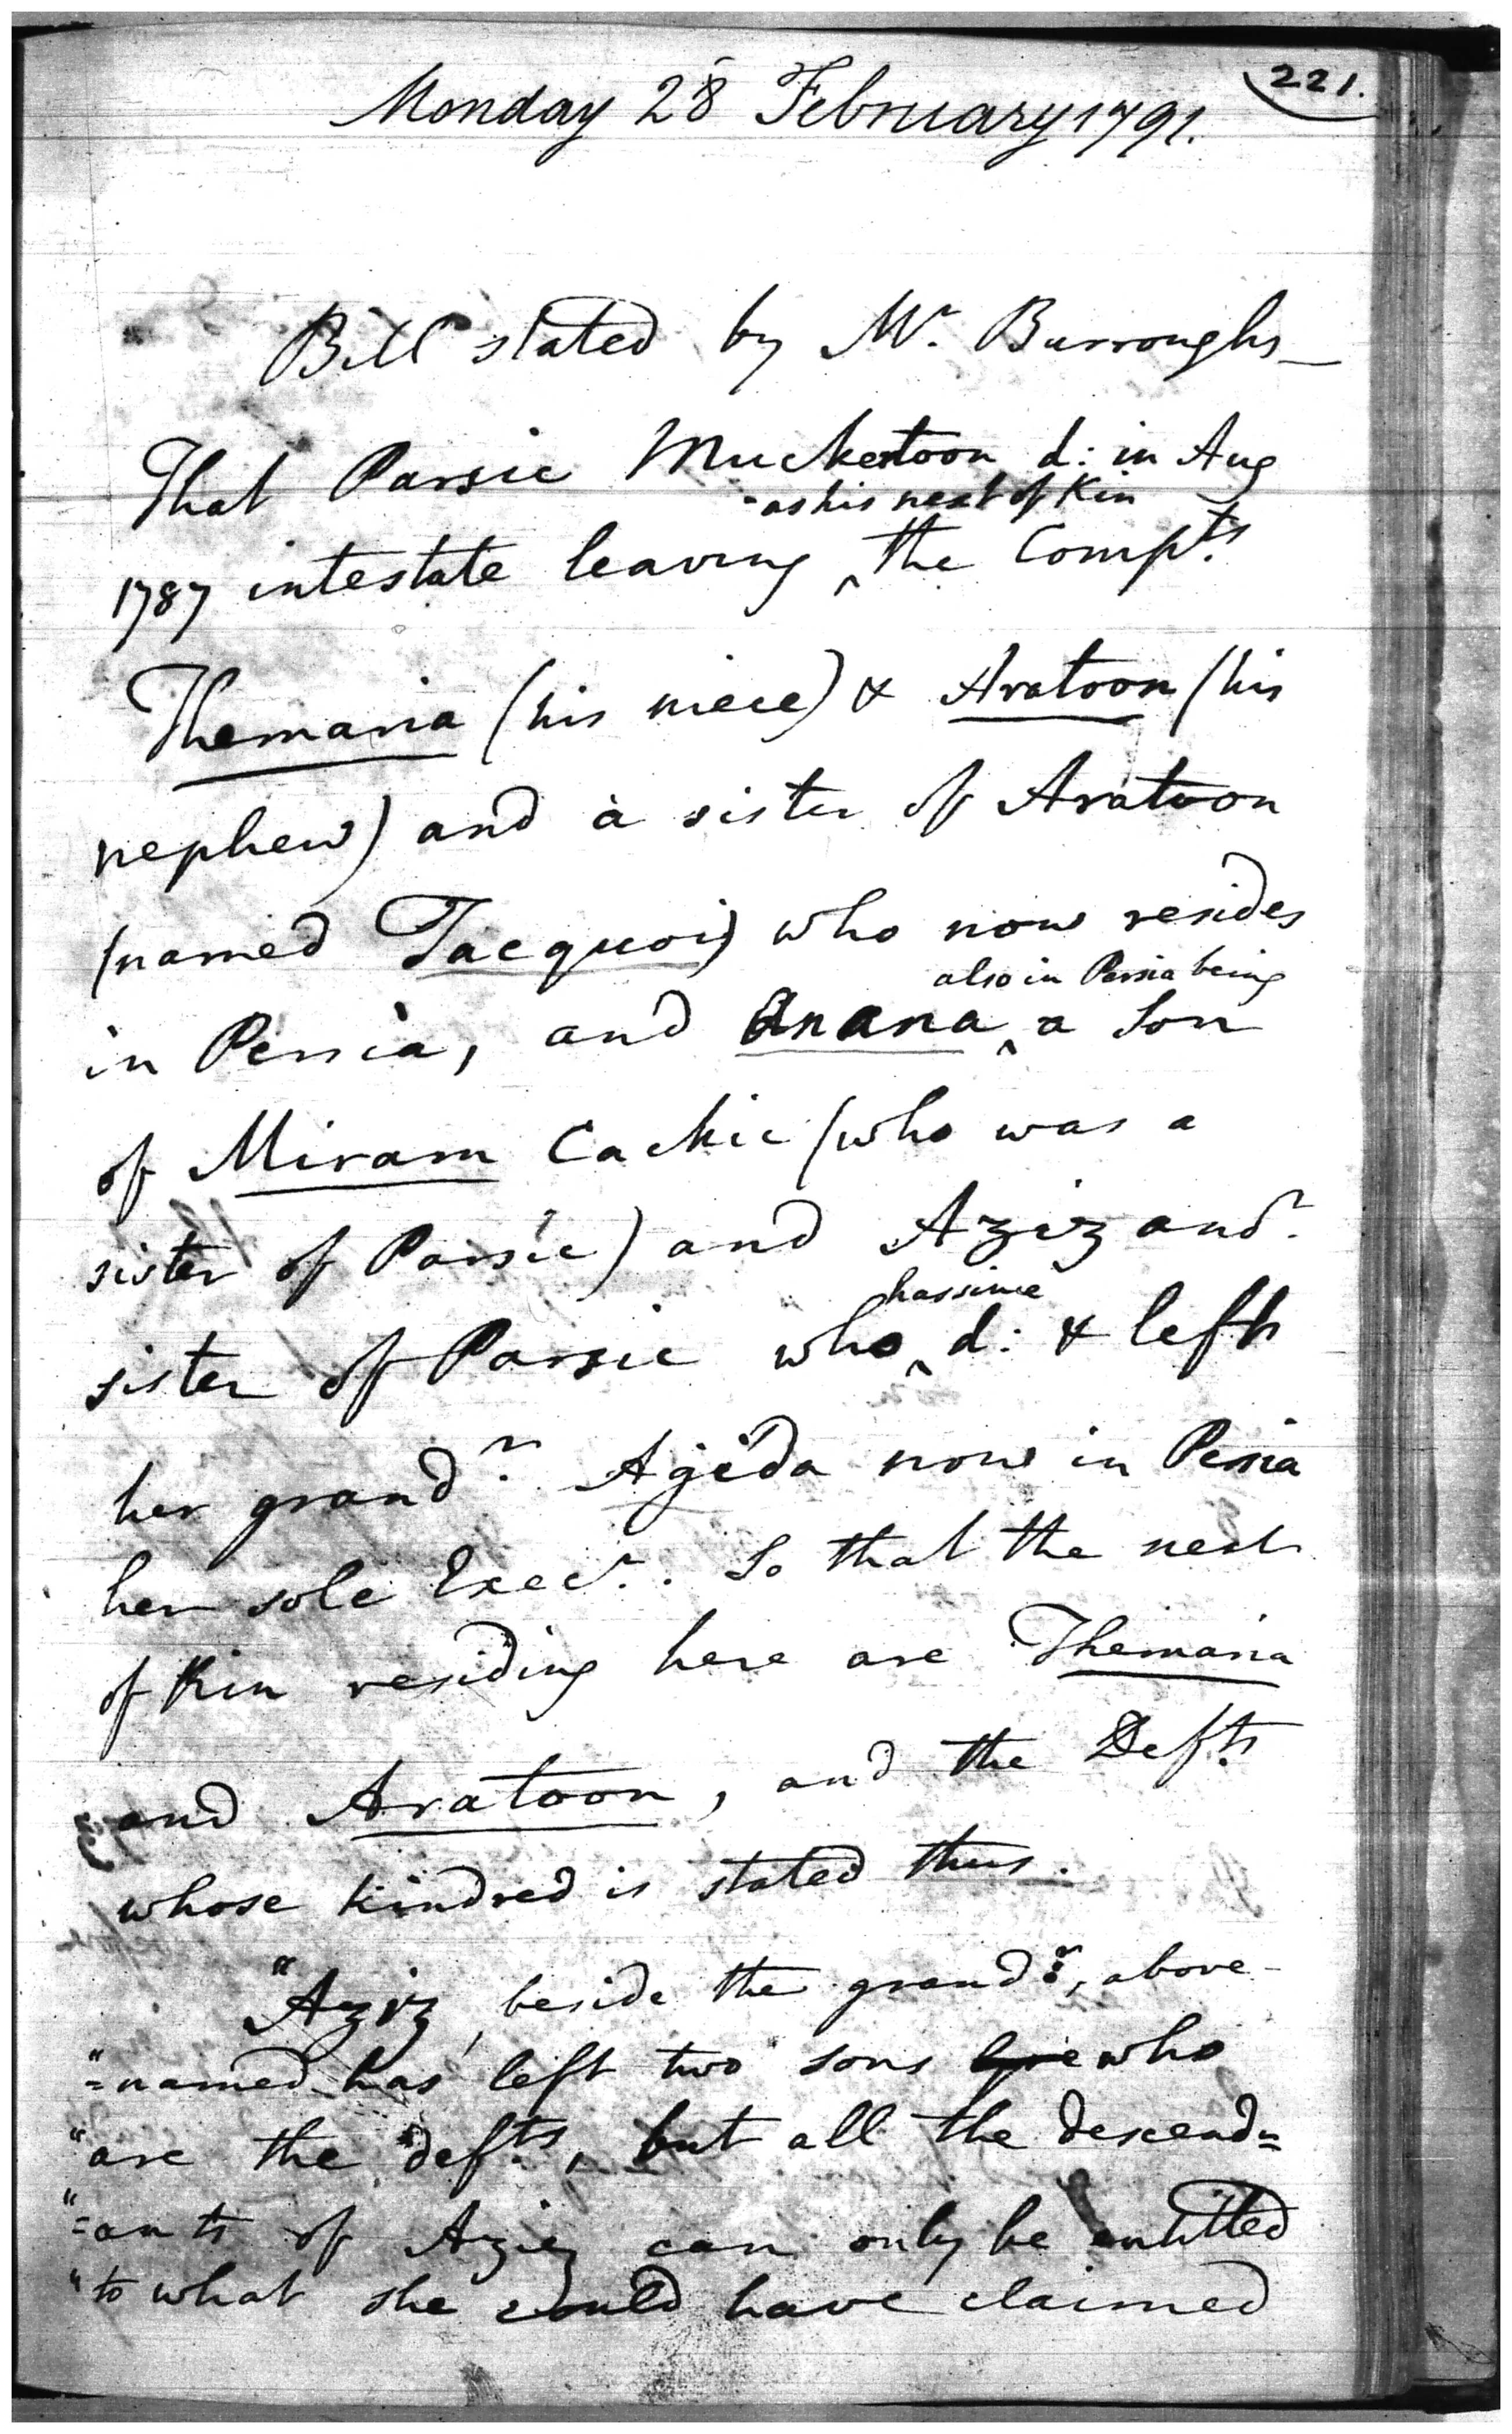 221.
Monday 28 February 1791.
Bill stated by Mr. Burroughs—
That Parsie Muckertoon d: in Aug
-as his next of Kin
1787 intestate leaving ^ the Compts.
Themaria (his niece) & Aratoon (his
nephew) and a sister of Aratoon
(named Tacquoi) who now resides
also in Persia being
in Persia, and Anana ^ a Son
of Miram Cachie (who was a
sister of Parsie) and Aziz anor.
has since
sister of Parsie who ^ d: & left
her grandr. Ageda now in Persia
her sole Execr.. So that the next
of Kin residing here are Themaria
and Aratoon, and the Defts.
whose Kindred is stated thus.
"Aziz, beside the grandr., above-
"=named has left two sons who
"are the defts., but all the descend=
"=ants of Aziz can only be entitled
"to what she could have claimed